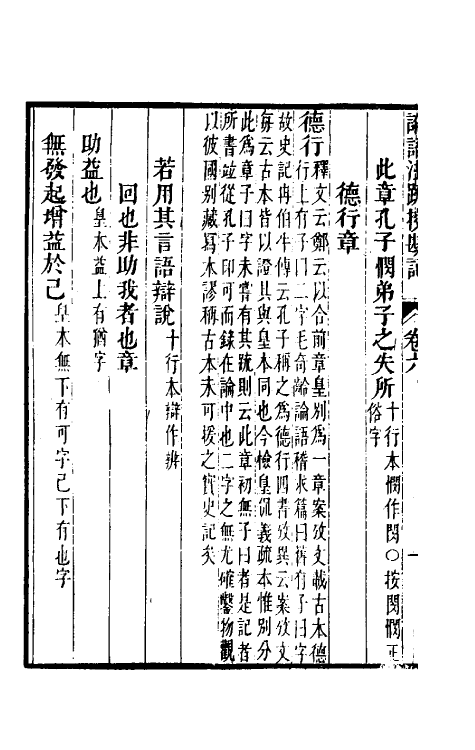 論語注疏挍勘記 卷六 一
此章孔子憫弟子之失所 十行本憫作閔○按閔憫正
俗字
德行章
德行 釋文云鄭云以合前章皇别爲一章案攷文載古本德
行上有子曰二字毛奇齡論語稽求篇曰舊有子曰字
故史記冉伯牛傳云孔子稱之爲德行四書攷異云案攷文
每云古本皆以證其與皇本同也今檢皇侃義疏本惟别分
此爲章子曰字未嘗有其疏則云此章初無子曰者是記者
所書竝從孔子印可而錄在論中也二字之無尤確鑿物觀
以彼國别藏寫本謬稱古本未可援之實史記矣
若用其言語辯說 十行本辯作辨
回也非助我者也章
助益也 皇本益上有猶字
無發起增益於己 皇本無下有可字己下有也字